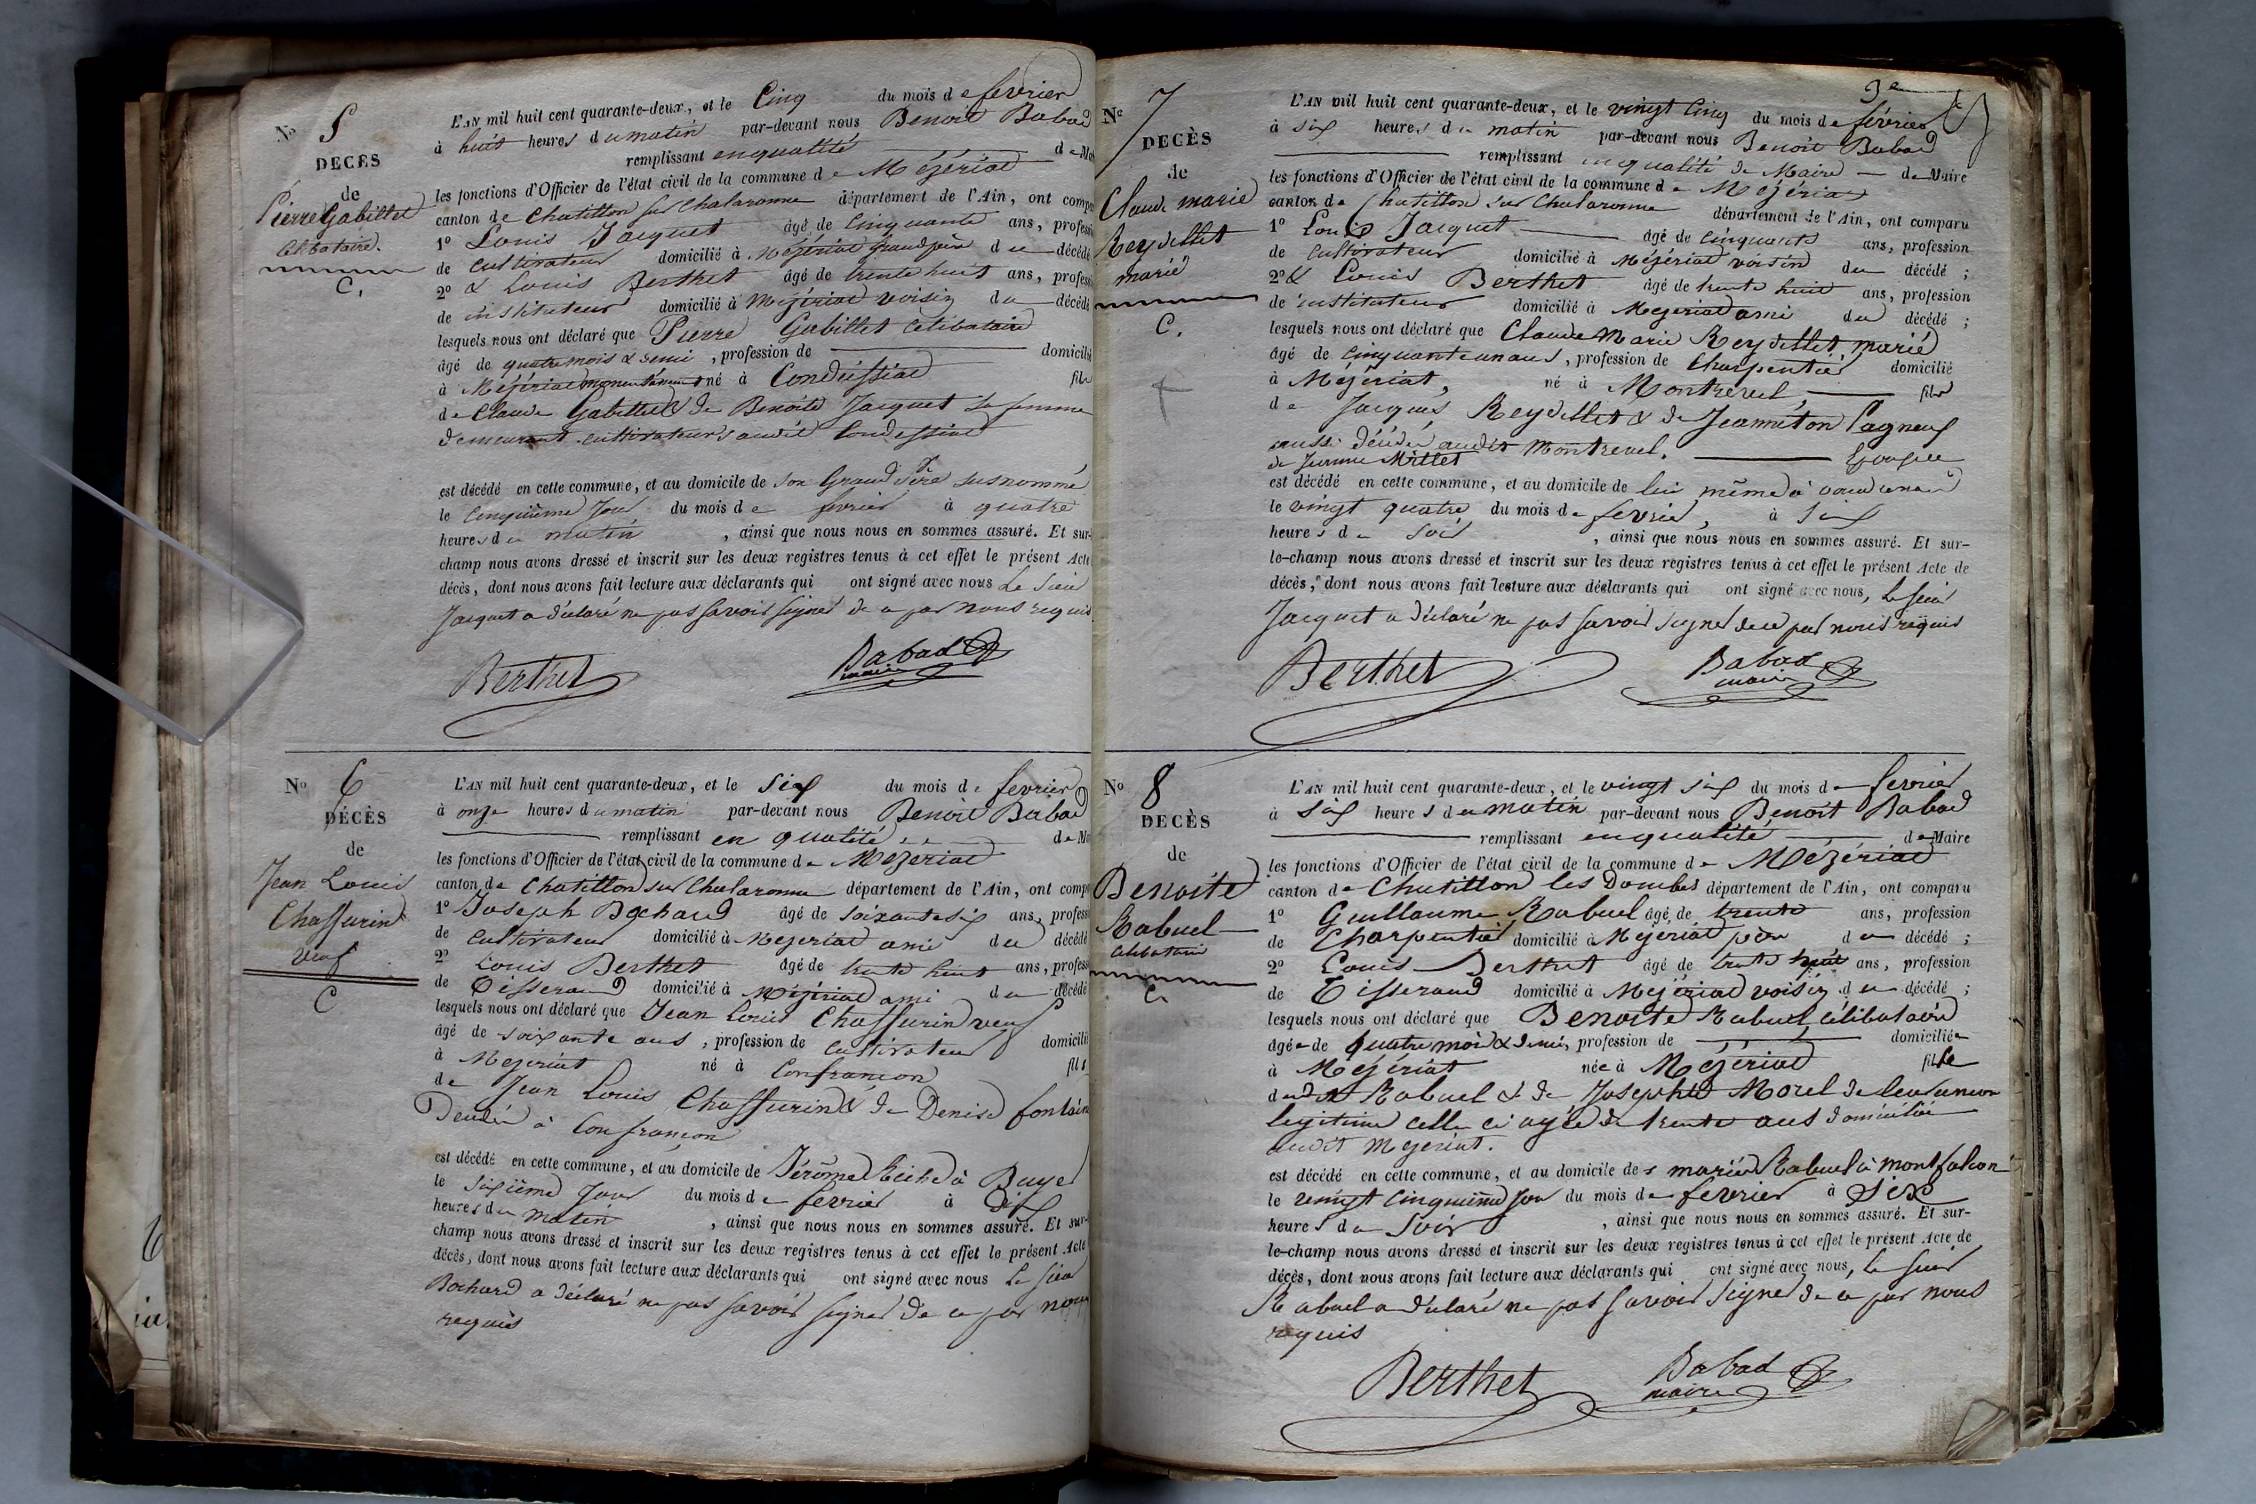 Nº 5
DÉCÈS
de
Pierre Gabillet
célibataire.
C.
L'AN mil huit cent quarante-deux, et le Cinq du mois de février
à huit heures du matin par-devant nous Benoit Babad
remplissant en qualité de M
les fonctions d'Officier de l'état civil de la commune de Mézériat
canton de Chatillon sur Chalaronne département de l'Ain, ont comp
1º Louis Jacquet âgé de Cinquante ans, profess
de Cultivateur domicilié à Mézériat grand père du décédé
2º & Louis Berthet âgé de trente huit ans, profess
de instituteur domicilié à Mézériat voisin du décédé
lesquels nous ont déclaré que Pierre Gabillet célibataire
âgé de quatre mois & demi, profession de domicilié
à Mézériat momentanément né à Condeissiat fils
de Claude Gabillet & de Benoite Jacquet sa femme
demeurant cultivateurs audit Condessiat
est décédé en cette commune, et au domicile de son Grand Père susnommé
le cinquième Jour du mois de février à quatre
heures du matin, ainsi que nous nous en sommes assuré. Et sur-
champ nous avons dressé et inscrit sur les deux registres tenus à cet effet le présent Acte
décès, dont nous avons fait lecture aux déclarants qui ont signé avec nous Le Sieur
Jacquet a déclaré ne pas savoir signer de ce par nous requis
Berthet Babad
maire
Nº 6
DÉCÈS
de
Jean Louis
Chaffurin
veuf
C
L'AN mil huit cent quarante-deux, et le six du mois de février
à onze heures du matin par-devant nous Benoit Babad
remplissant en qualité de M
les fonctions d'Officier de l'état civil de la commune de Mézériat
canton de Chatillon sur Chalaronne département de l'Ain, ont comp
1º Joseph Bochard âgé de soixante six ans, profess
de Cultivateur domicilié à Mezeriat ami du décédé
2º Louis Berthet âgé de trente huit ans, profess
de Tisserand domicilié à Mézériat ami du décédé
lesquels nous ont déclaré que Jean Louis Chaffurin veuf
âgé de soixante ans, profession de Cultivateur domicilié
à Mezeriat né à Confrançon fils
de Jean Louis Chaffurin & de Denise fontaine
Décédés à Confrançon
est décédé en cette commune, et au domicile de Jérôme à
le sixième Jour du mois de février à dix
heures du matin, ainsi que nous nous en sommes assuré. Et sur-
champ nous avons dressé et inscrit sur les deux registres tenus à cet effet le présent Acte
décès, dont nous avons fait lecture aux déclarants qui ont signé avec nous Le sieur
Bochard a déclaré ne pas savoir signer de ce par nous
requis
3e
Nº 7
DÉCÈS
de
Claude marie
Reydellet
marié
C.
L'AN mil huit cent quarante-deux, et le vingt Cinq du mois de février
à six heures du matin par-devant nous Benoit Babad
remplissant en qualité de Maire de Maire
les fonctions d'Officier de l'état civil de la commune de Mézériat
canton de Chatillon sur Chalaronne département de l'Ain, ont comparu
1º Louis Jacquet âgé de cinquante ans, profession
de Cultivateur domicilié à Mézériat voisin du décédé ;
2º & Louis Berthet âgé de trente huit ans, profession
de instituteur domicilié à Mezeriat ami du décédé ;
lesquels nous ont déclaré que Claude Marie Reydellet marié
âgé de cinquante un ans, profession de Charpentier domicilié
à Mézériat, né à Montrevel, fils
de Jacques Reydellet & de Jeanneton Pagneux
aussi décédés audit Montrevel. Epoux
de Jeanne Millet
est décédé en cette commune, et au domicile de lui même à
le vingt quatre du mois de février, à six
heures du soir, ainsi que nous nous en sommes assuré. Et sur-
le-champ nous avons dressé et inscrit sur les deux registres tenus à cet effet le présent Acte de
décès, dont nous avons fait lecture aux déclarants qui ont signé avec nous, le sieur
Jacquet a déclaré ne pas savoir signer de ce par nous requis
Berthet Babad
maire
Nº 8
DÉCÈS
de
Benoite
Rabuel
célibataire
C.
L'AN mil huit cent quarante-deux, et le vingt six du mois de février
à six heures du matin par-devant nous Benoit Babad
remplissant en qualité de Maire
les fonctions d'Officier de l'état civil de la commune de Mézériat
canton de Chatillon les Dombes département de l'Ain, ont comparu
1º Guillaume Rabuel âgé de trente ans, profession
de Charpentier domicilié à Mezeriat père du décédé ;
2º Louis Berthet âgé de trente huit ans, profession
de Tisserand domicilié à Mezériat voisin du décédé ;
lesquels nous ont déclaré que Benoite Rabuel célibataire
âgée de quatre mois & demi, profession de domiciliée
à Mézériat née à Mézériat fille
dudit Rabuel & de Josephte Morel de leur union
légitime celle ci agée de trente ans domiciliée
audit Mezeriat.
est décédé en cette commune, et au domicile des mariés Rabuel à montfalcon
le vingt cinquième jour du mois de février à six
heures du soir, ainsi que nous nous en sommes assuré. Et sur-
le-champ nous avons dressé et inscrit sur les deux registres tenus à cet effet le présent Acte de
décès, dont nous avons fait lecture aux déclarants qui ont signé avec nous, le sieur
Rabuel a déclaré ne pas savoir signer de ce par nous
requis
Berthet Babad
maire